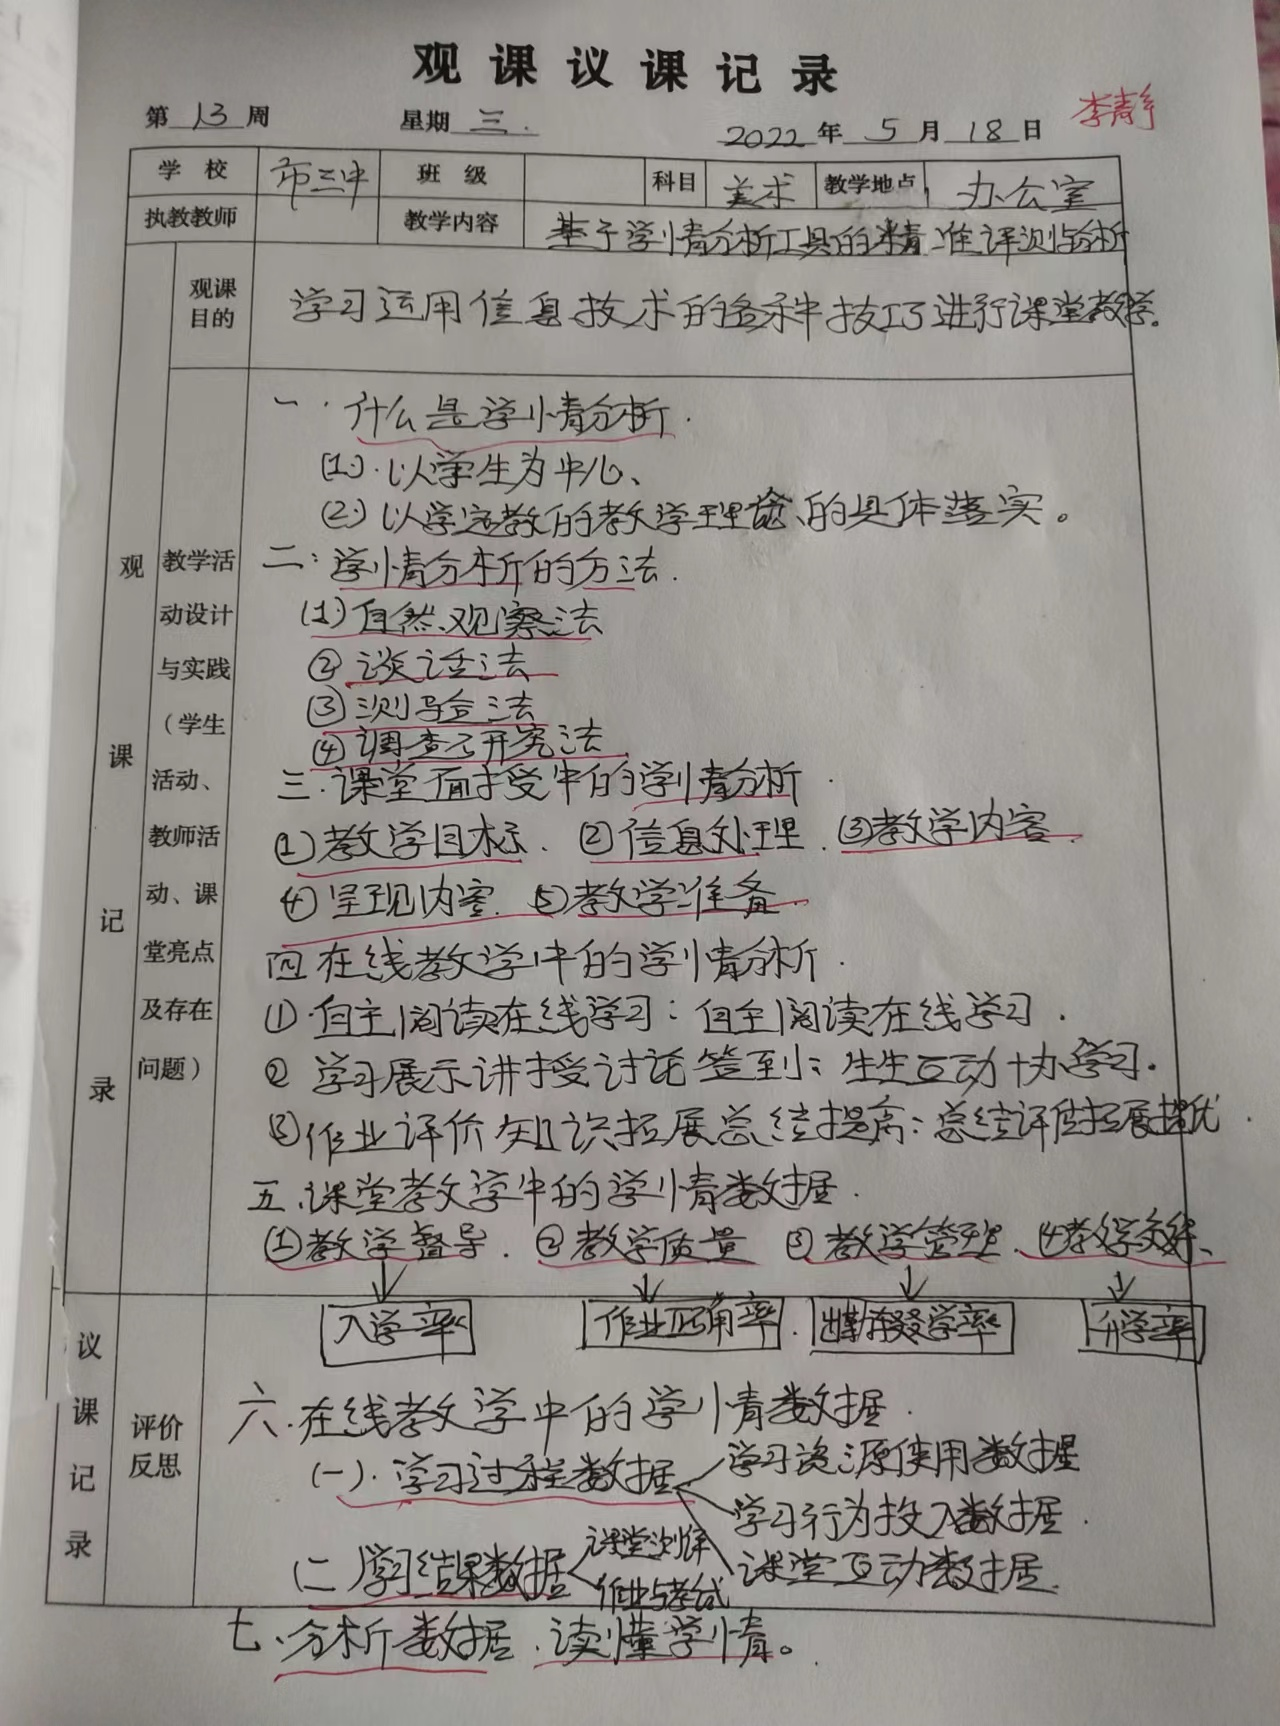 观课议课记录
第 13 周 星期 三. 2022 年 5 月 18 日 李静
学校 市三中 班级 科目 美术 教学地点 办公室
执教教师 教学内容 基于学情分析工具的精准评测与分析
观课记录
观课目的 学习运用信息技术的各种技巧进行课堂教学.
教学活动设计与实践(学生活动、教师活动、课堂亮点及存在问题)
一.什么是学情分析.
(1).以学生为中心、
(2)以学定教的教学理论的具体落实。
二:学情分析的方法.
(1)自然观察法
②谈话法
③测验法
④调查研究法
三.课堂面授中的学情分析.
①教学目标.②信息处理.③教学内容.
④呈现内容.⑤教学准备.
四在线教学中的学情分析.
①.自主阅读在线学习:自主阅读在线学习.
②学习展示讲授讨论签到:生生互动协学习.
③作业评价知识拓展总结提高:总结评价拓展提优.
五.课堂教学中的学情数据.
①教学督导.②教学质量③教学管理.④教学
入学率 作业正确率.出勤辍学率 升学率
议课记录
评价反思
六.在线教学中的学情数据.
(一).学习过程数据 学习资源使用数据
学习行为投入数据.
课堂互动数据.
(二学习结果数据 课堂测评
作业与考试
七.分析数据.读懂学情。